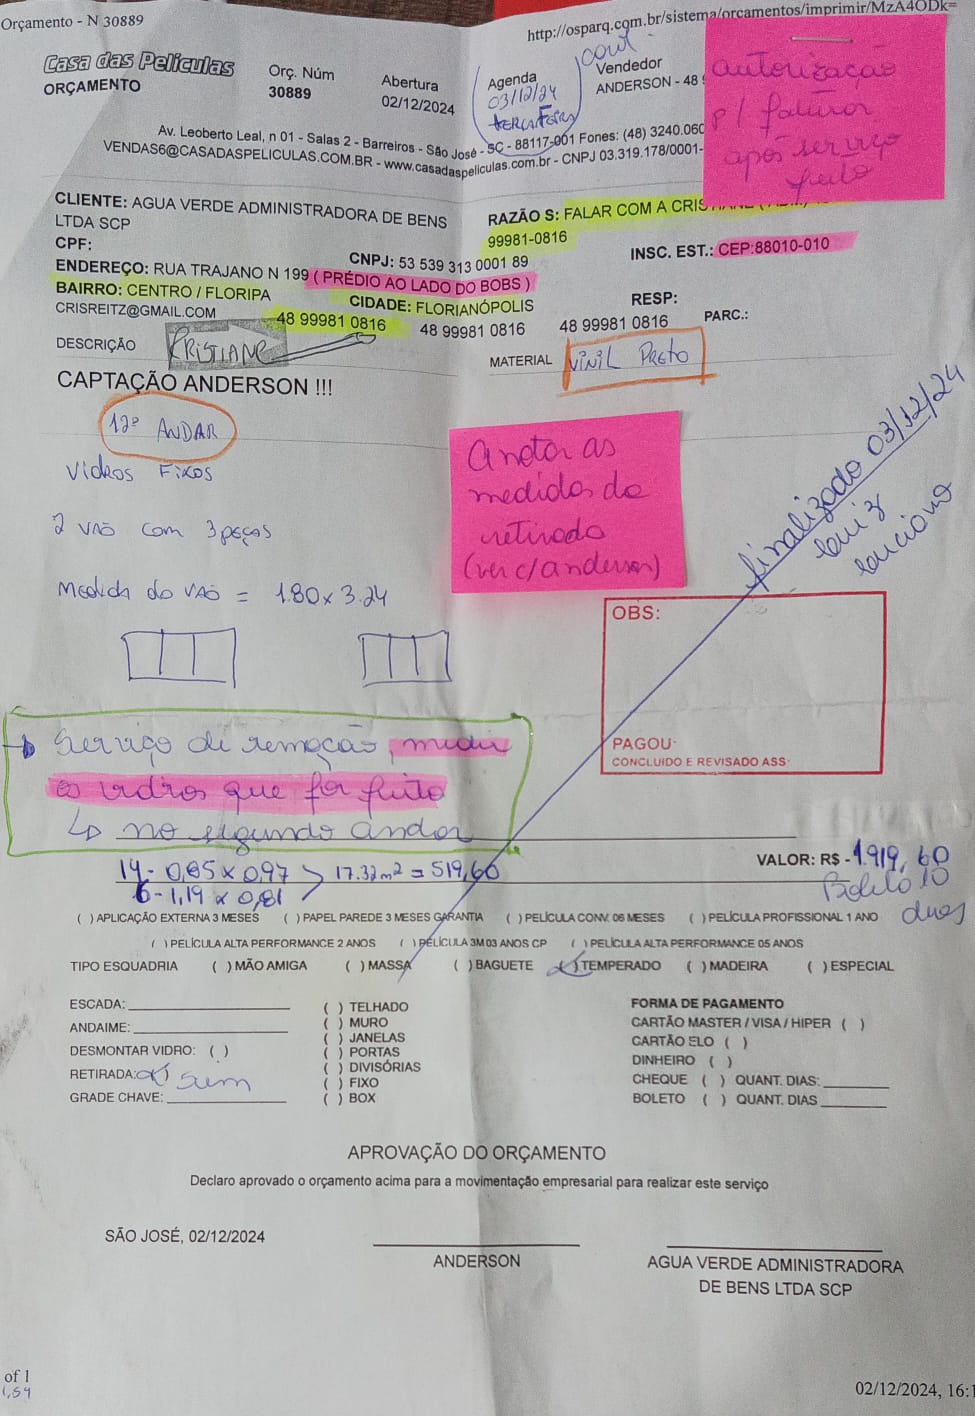 Orçamento - N 30889
http://osparq.com.br/sistema/orcamentos/imprimir/MzA4ODk=
Casa das Películas
ORÇAMENTO
Orç. Núm
30889
Abertura
02/12/2024
Agenda
03/12/24
TERÇA FEIRA
cont.
Vendedor
ANDERSON - 48
autorização
p/ faturar
após serviço
feito
Av. Leoberto Leal, n 01 - Salas 2 - Barreiros - São José - SC - 88117-001 Fones: (48) 3240.060
VENDAS6@CASADASPELICULAS.COM.BR - www.casadaspeliculas.com.br - CNPJ 03.319.178/0001-
CLIENTE: AGUA VERDE ADMINISTRADORA DE BENS
LTDA SCP
RAZÃO S: FALAR COM A
99981-0816
CPF:
CNPJ: 53 539 313 0001 89
INSC. EST.: CEP:88010-010
ENDEREÇO: RUA TRAJANO N 199 ( PRÉDIO AO LADO DO BOBS )
BAIRRO: CENTRO / FLORIPA
CIDADE: FLORIANÓPOLIS
RESP:
CRISREITZ@GMAIL.COM
48 99981 0816
48 99981 0816
48 99981 0816
PARC.:
DESCRIÇÃO
CRISTIANE
MATERIAL
VINIL PRETO
CAPTAÇÃO ANDERSON !!!
12º ANDAR
Vidros Fixos
2 VÃO com 3 peças
Medida do VÃO = 1.80 x 3.24
Anotar as
medidas da
retirada
(ver c/ anderson)
finalizado 03/12/24
luiz
luciano
OBS:
PAGOU:
CONCLUIDO E REVISADO ASS:
Serviço de remoção, medir
os vidros que for feito
↳ no segundo andar
14 - 0,85 x 0,97
6 - 1,19 x 0,81
> 17.32 m² = 519,60
VALOR: R$ - 1.919,60
Boleto 10
dias
( ) APLICAÇÃO EXTERNA 3 MESES ( ) PAPEL PAREDE 3 MESES GARANTIA ( ) PELÍCULA CONV. 06 MESES ( ) PELÍCULA PROFISSIONAL 1 ANO
( ) PELÍCULA ALTA PERFORMANCE 2 ANOS ( ) PELÍCULA 3M 03 ANOS CP ( ) PELÍCULA ALTA PERFORMANCE 05 ANOS
TIPO ESQUADRIA ( ) MÃO AMIGA ( ) MASSA ( ) BAGUETE (x) TEMPERADO ( ) MADEIRA ( ) ESPECIAL
ESCADA:
ANDAIME:
DESMONTAR VIDRO: ( )
RETIRADA: (x) sim
GRADE CHAVE:
( ) TELHADO
( ) MURO
( ) JANELAS
( ) PORTAS
( ) DIVISÓRIAS
( ) FIXO
( ) BOX
FORMA DE PAGAMENTO
CARTÃO MASTER / VISA / HIPER ( )
CARTÃO ELO ( )
DINHEIRO ( )
CHEQUE ( ) QUANT. DIAS:
BOLETO ( ) QUANT. DIAS
APROVAÇÃO DO ORÇAMENTO
Declaro aprovado o orçamento acima para a movimentação empresarial para realizar este serviço
SÃO JOSÉ, 02/12/2024
ANDERSON
AGUA VERDE ADMINISTRADORA
DE BENS LTDA SCP
of 1
1,54
02/12/2024, 16:1